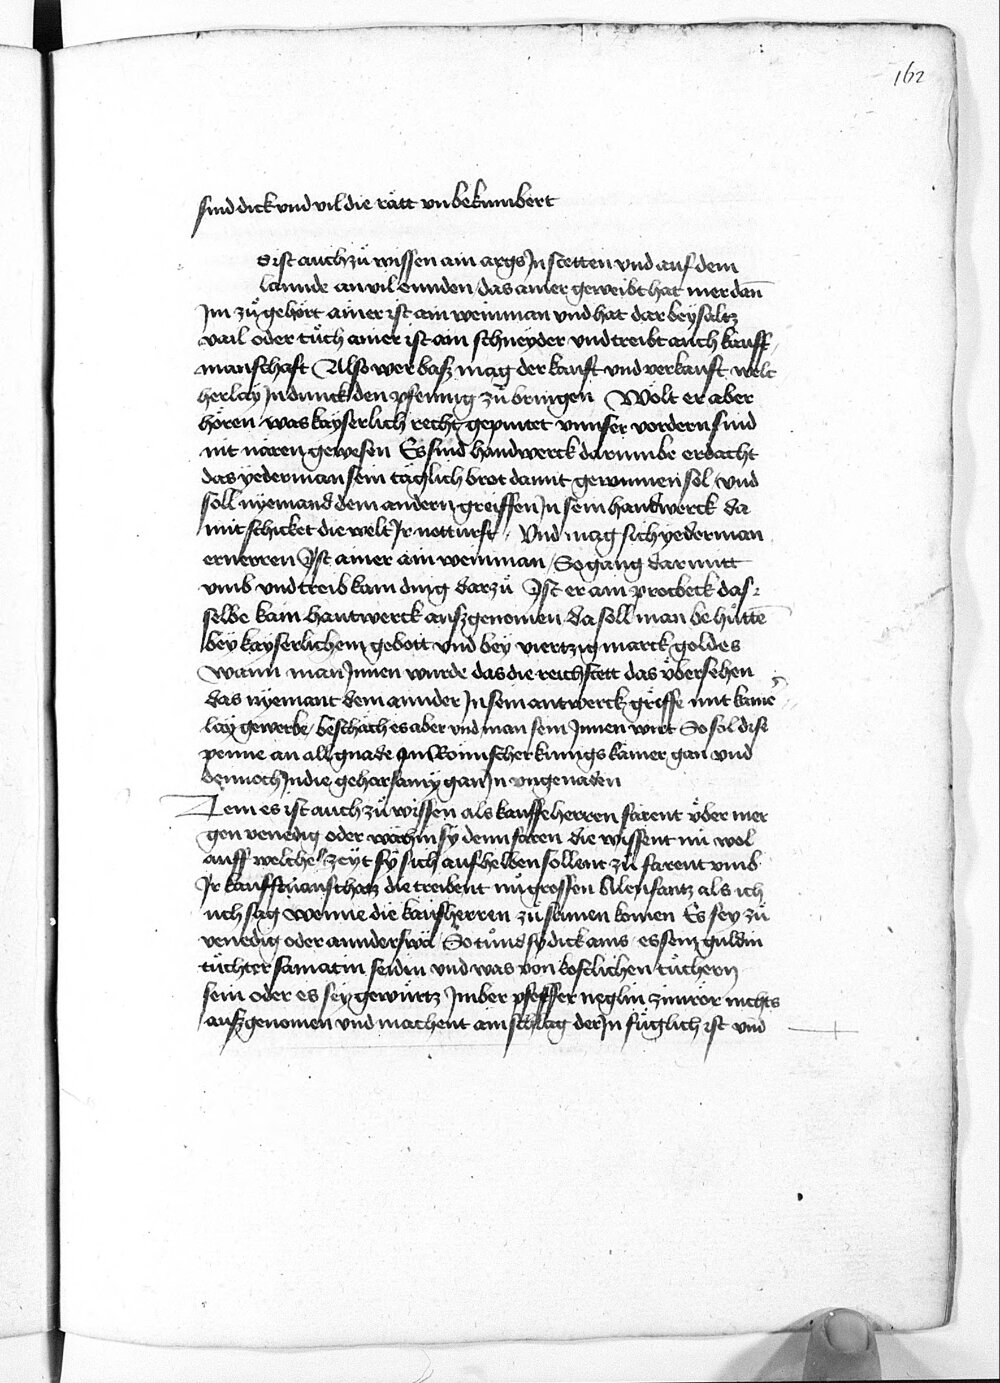 162
sind dick vnd vil die rätt vnbekumbert
s ist auch zů wissen ain args Jn stetten vnd auf dem
lannde an vil ennden das ainer geweibt hat mer dan̄
Jm zů gehört ainer ist ain weinman vnd hat dar bey saltz
vail oder tůch ainer ist ain schneyder vnd treibt auch kauff
manschaft Also wer basz mag der kauft vnd verkauft welt
herlay Jn dunck den pfennig zů bringen Wölt er aber
hören was kayserlich recht geputet vnnser vordern sind
nit naren gewesen Es sind handwerck darumbe erdacht
das yederman sein täglich brot damit gewinnen sol vnd
soll nyemand dem andern greiffen Jn sein handwerck da
mit schicket die welt Jr notturft Vnd mag sich yederman
ernerren Jst ainer ain weinman So gang dar mitt
vmb vnd treib kain ding darzů Jst er ain protbeck das
selbe kain hantwerck auszgenomen da soll man behüttē
bey kayserlichem gebott vnd bey viertzig marck goldes
wann man Jnnen wurde das die reichstett das übersehen
das nyemant dem annder Jn sein antwerck griffe mit kaine
lay gewerbe beschäch es aber vnd man sein Jnnen wirt So sol dise
penne an all gnade Jm Römischer kunigs kamer gan vnd
dennoch Jn die gehorsamy gan Jn vngenaden
Jtem es ist auch zů wissen als kauffeherren farent über mer
gen venedig oder wahin sy denn faren die wissent nu wol
auff welche zeyt sy sich auf heben sollent zů farent vmb
Jr kauffmanschatz die treibent nu grossen Alenfantz als ich
uch sag Wenne die kaufherren zů samen komen Es sey zů
venedig oder annderswa So tůnd sy dick ains es seyn guldin
tüchter samatin seidin vnd was von kostlichen tüchern
sein oder es sey gewürtz Jmber pfeffer neglin zimrör nichts
auszgenomen vnd machent ain schlag der Jn füglich ist vnd